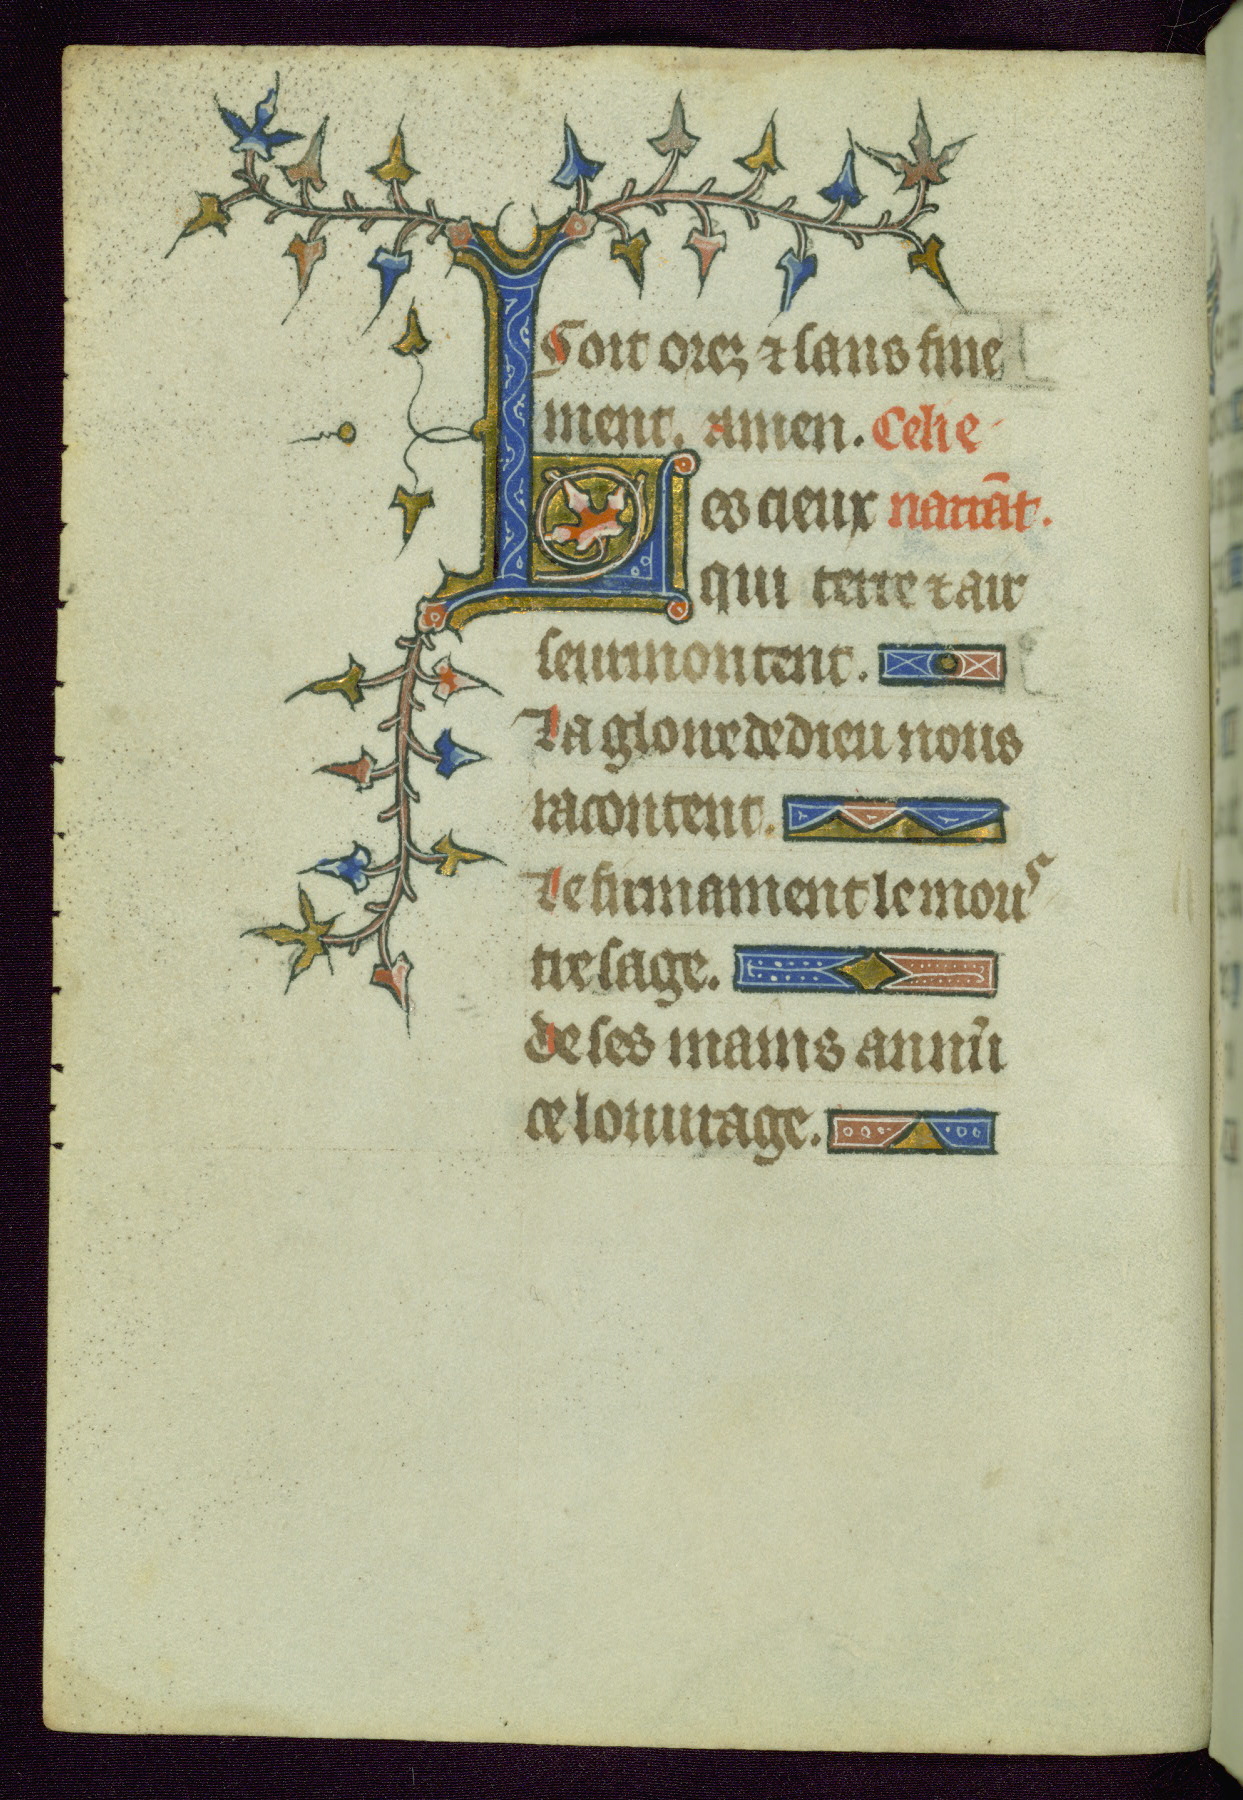 Soit orez ⁊ sans fine
ment. amen. Celi e
Les cieux narrāt.
qui terre ⁊ air
seurmontent.
La gloire de dieu nous
racontent.
Le firmament le mous
tre sage.
de ses mains annūı
ce louurage.